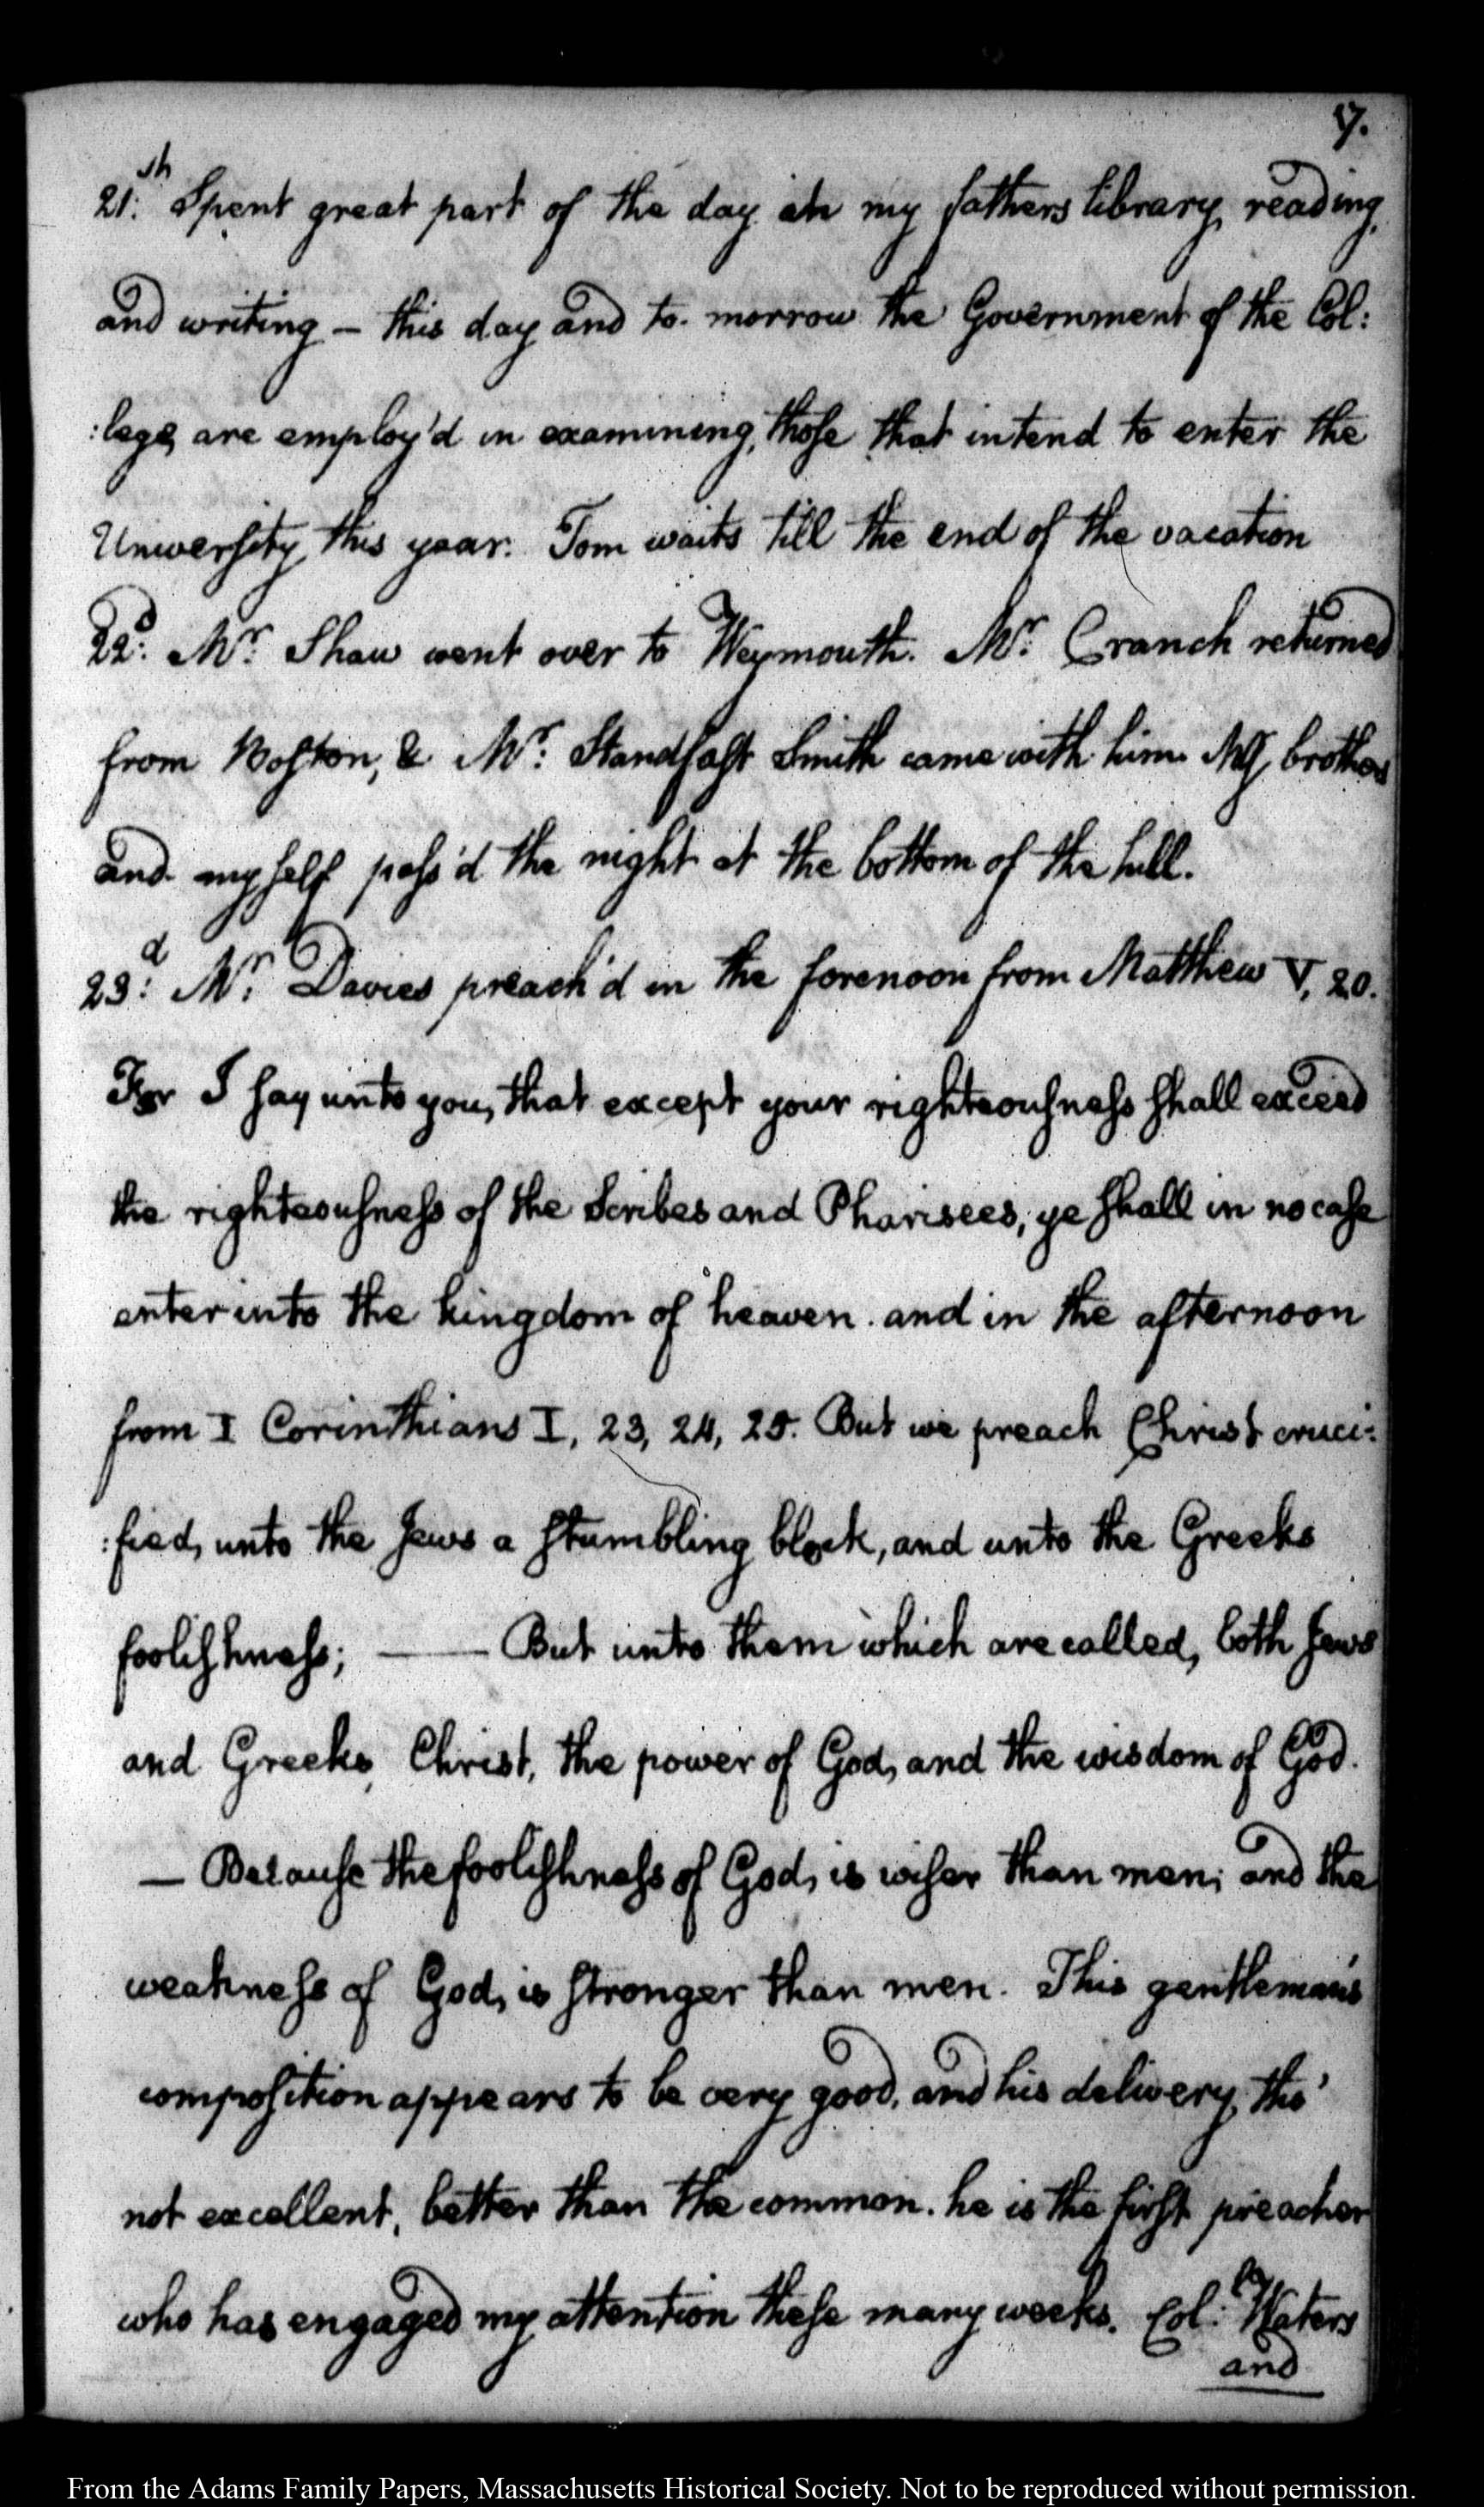 17.
21.th Spent great part of the day in my fathers library, reading,
and writing – this day and to-morrow the Government of the Col:
:lege, are employ'd in examining, those that intend to enter the
University, this year. Tom waits till the end of the vacation
22d. Mr. Shaw went over to Weymouth. Mr. Cranch returned
from Boston, & Mr. Standfast Smith came with him. My brother
and myself pass'd the night at the bottom of the hill.
23d. Mr. Davies preach'd in the forenoon from Matthew V, 20.
For I say unto you, that except your righteousness shall exceed
the righteousness of the Scribes and Pharisees, ye shall in no case
enter into the kingdom of heaven. and in the afternoon
from I Corinthians I, 23, 24, 25. But we preach Christ cruci:
:fied, unto the Jews a stumbling block, and unto the Greeks
foolishness; — But unto them which are called, both Jews
and Greeks, Christ, the power of God, and the wisdom of God.
— Because the foolishness of God, is wiser than men; and the
weakness of God, is stronger than men. This gentleman's
composition appears to be very good, and his delivery, tho'
not excellent, better than the common. he is the first preacher
who has engaged my attention these many weeks. Col: Waters
and
From the Adams Family Papers, Massachusetts Historical Society. Not to be reproduced without permission.